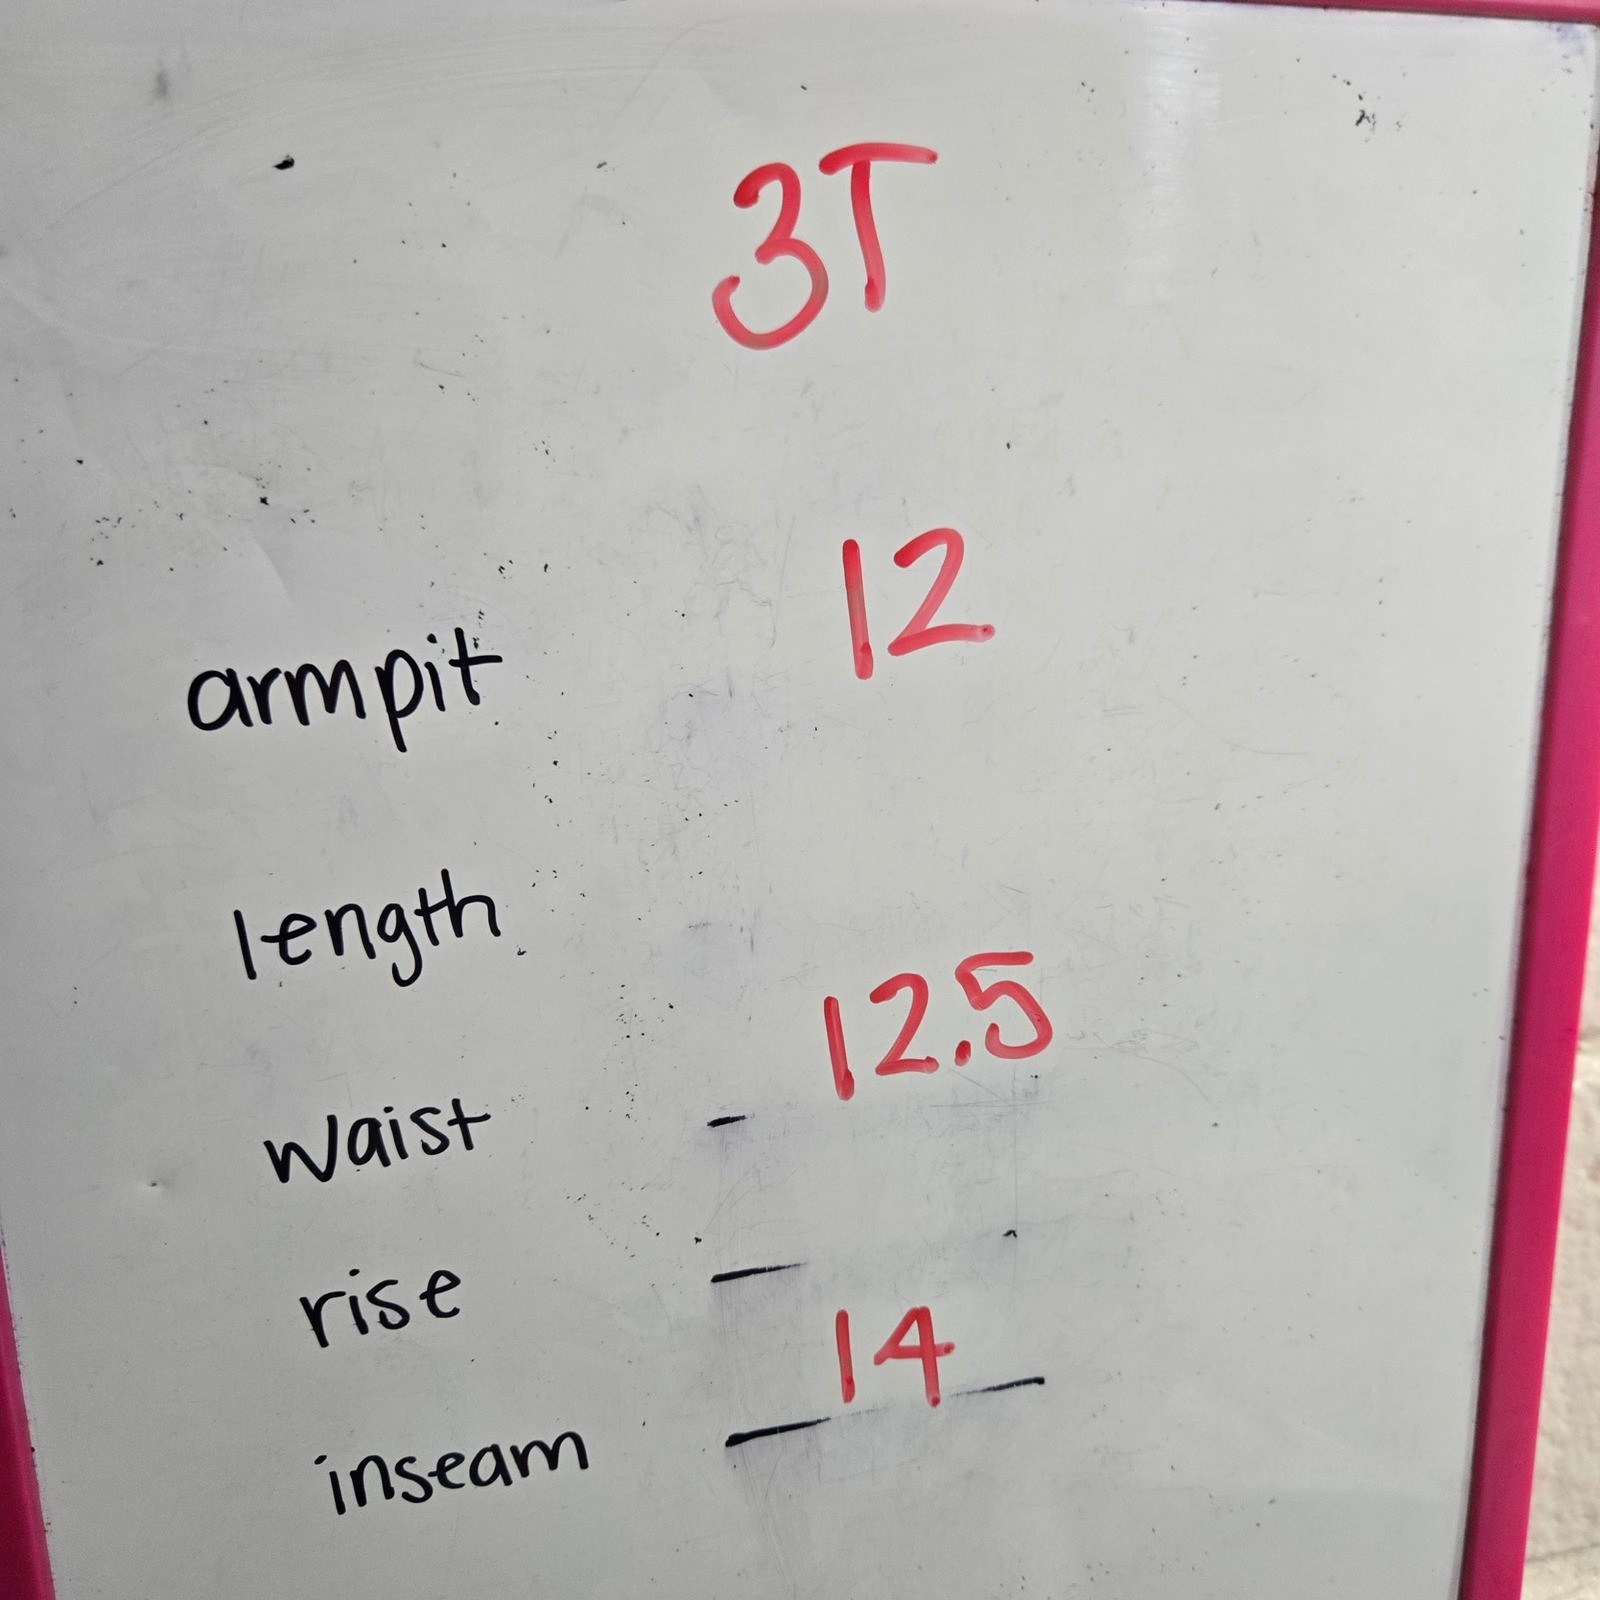 3T
armpit 12
length
waist 12.5
rise
inseam 14